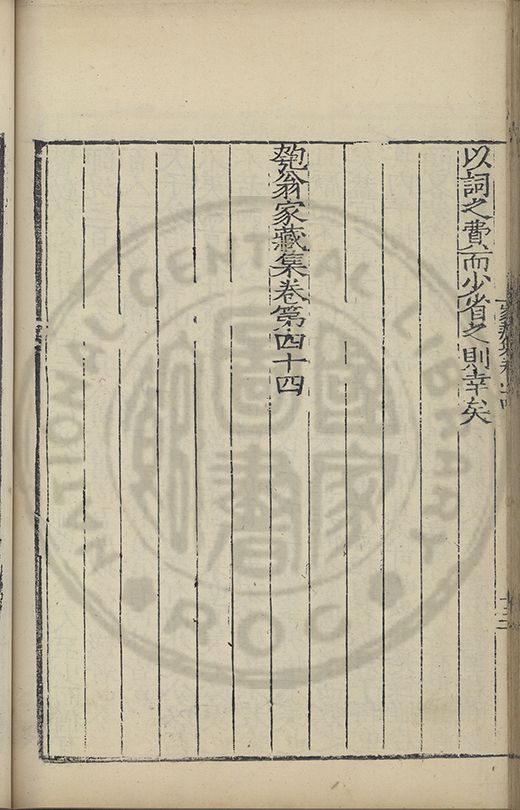 以詞之費而少省之則幸矣
匏翁家藏集卷第四十四